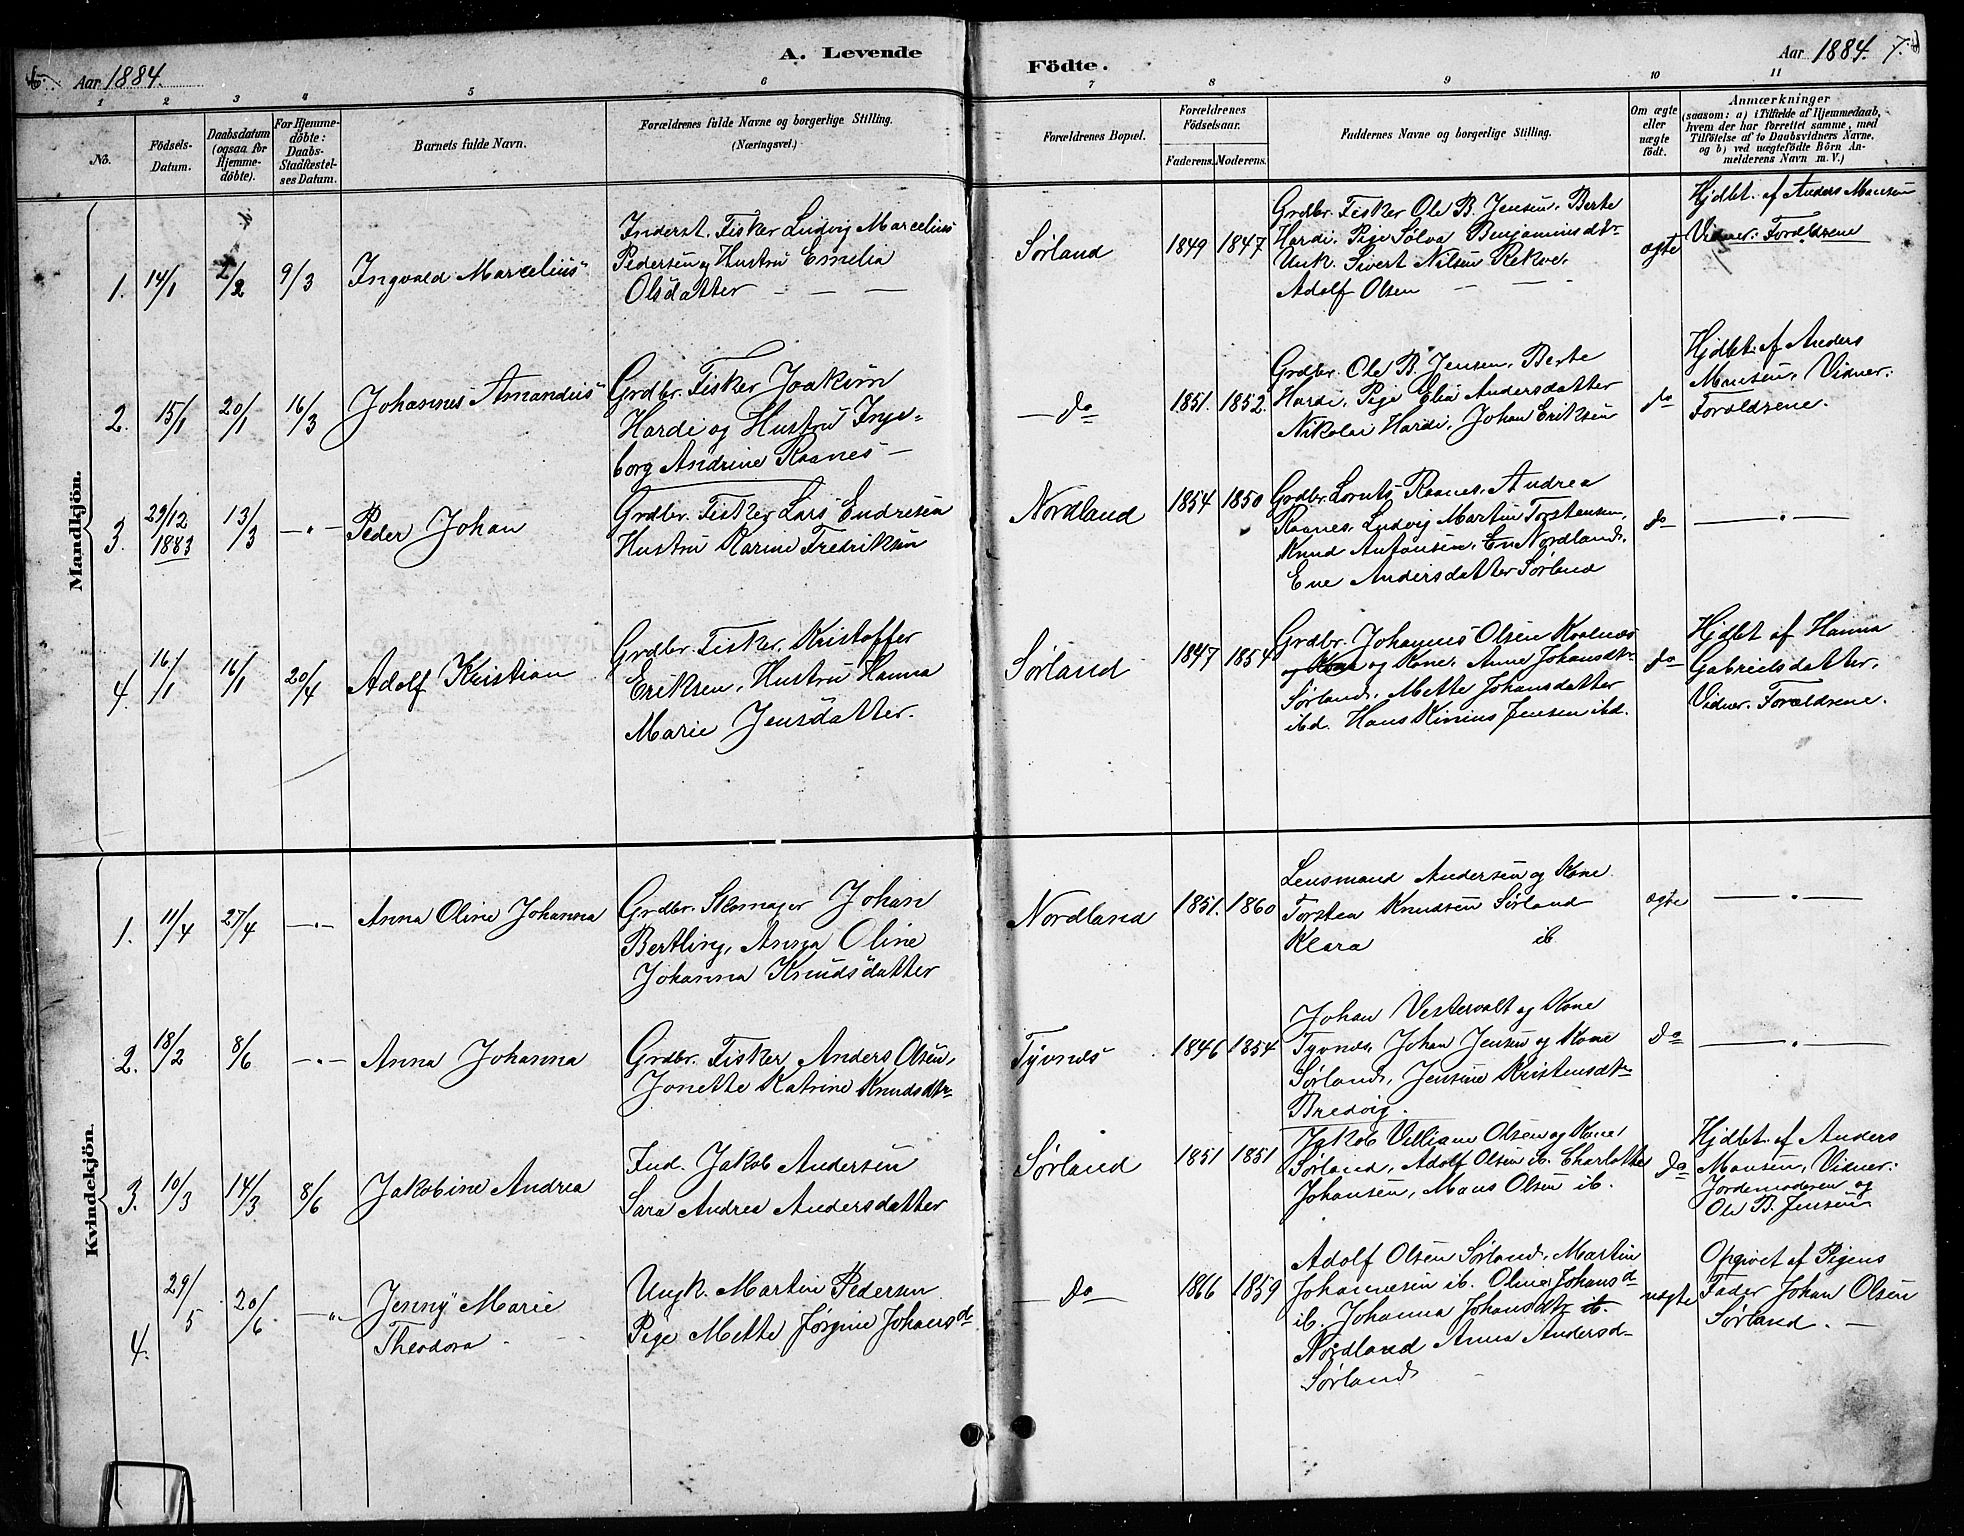 6.
Aar 1884.
A. Levende
Födte.
Aar 1884. 7.
1 2 3 4 5 6 7 8 9 10 11
No.
Födsels-
Datum.
Daabsdatum
(ogsaa for
Hjemme-
döbte).
For Hjemme-
döbte:
Daabs-
Stadfæstel-
ses Datum.
Barnets fulde Navn.
Forældrenes fulde Navne og borgerlige Stilling.
(Næringsvei.)
Forældrenes Bopæl.
Forældrenes
Födselsaar.
Faderens. Moderens.
Faddernes Navne og borgerlige Stilling.
Om ægte
eller
uægte
födt.
Anmærkninger
(saasom: a) i Tilfælde af Hjemmedaab,
hvem der har forrettet samme, med
Tilföielse af to Daabsvidners Navne.
og b) ved uægtefödte Börn An-
melderens Navn m. V.)
Mandkjön.
1. 14/1 2/2 9/3 Ingvald Marcelius
Inderst. Fisker Ludvig Marcelius
Pedersen og Hustru Emelia
Olsdatter — — —
Sørland 1849 1847
Grdbr. Fisker Ole B. Jensen, Berte
Hardi, Pige Sølva Benjaminsdtr
Unk. Sivert Nilsen Rekve,
Adolf Olsen — —
ægte
Hjdbt. af Anders Mansen
Vidner: Forældrene
2. 15/1 20/1 16/3 Johannes Amandus
Grdbr. Fisker Joakim
Hardi og Hustru Inge-
borg Andrine Raanes —
— do 1851. 1852.
Grdbr. Ole B. Jensen, Berte
Hardi, Pige Elia Andersdatter
Nikolai Hardi, Johan Eriksen
do
Hjdbt. af Anders
Mansen, Vidner:
Forældrene.
3. 29/12 1883 13/3 — " — Peder Johan
Grdbr. Fisker Lars Endresen
Hustru Karine Fredriksen
Nordland 1854 1850
Grdbr. Lornts Raanes, Andrea
Raanes, Ludvig Martin Torstensen,
Knud Antonsen, En Nordland,
Ene Andersdatter Sørland
do — " —
4. 16/1 16/1 20/4 Adolf Kristian
Grdbr. Fisker, Kristoffer
Eriksen, Hustru Hanna
Marie Jensdatter.
Sørland 1847 1854
Grdbr. Johannes Olsen Kvalnes
og Kone og Kone, Anne Johansdtr
Sørland, Mette Johansdatter
ibd. Hans Kinius Jensen ibd.
do
Hjdbt af Hanna
Gabrielsdatter,
Vidner. Forældrene.
Kvindekjön.
1. 11/4 27/4 — " — Anna Oline Johanna
Grdbr. Skomager Johan
Bertling, Anna Oline
Johanna Knudsdatter
Nordland 1851. 1860
Lensmand Andersen og Kone
Torsten Knudsen Sørland
Klara ib.
ægte — " —
2. 18/2 8/6 — " — Anna Johanna
Grdbr. Fisker Anders Olsen,
Jonette Katrine Knudsdtr
Tyvnes 1846 1854
Johan Vestervolt og Kone
Tyvnes, Johan Jensen og Kone
Sørland, Jensine Kristensdtr
Bredvig.
do — " —
3. 10/3 14/3 8/6 Jakobine Andrea
Ind. Jakob Andersen
Sara Andrea Andersdatter
Sørland 1851 1851
Jakob Villiam Olsen og Kone,
Sørland, Adolf Olsen ib. Charlotte
Johansen, Mans Olsen ib.
do
Hjdbt. af Anders
Mansen, Vidner:
Jordemoderen og
Ole B. Jensen
4. 29/5 20/6 — " — Jenny Marie
Theodora
Ungk. Martin Pedersen
Pige Mette Jørgine Johansd
— do — 1866 1859
Adolf Olsen Sørland, Martin
Johannesen ib. Oline Johansd
ib. Johanna Johansdtr ib.
Nordland Anna Andersd-
Sørland
uægte
Opgivet af Pigens
Fader Johan Olsen
Sørland. —